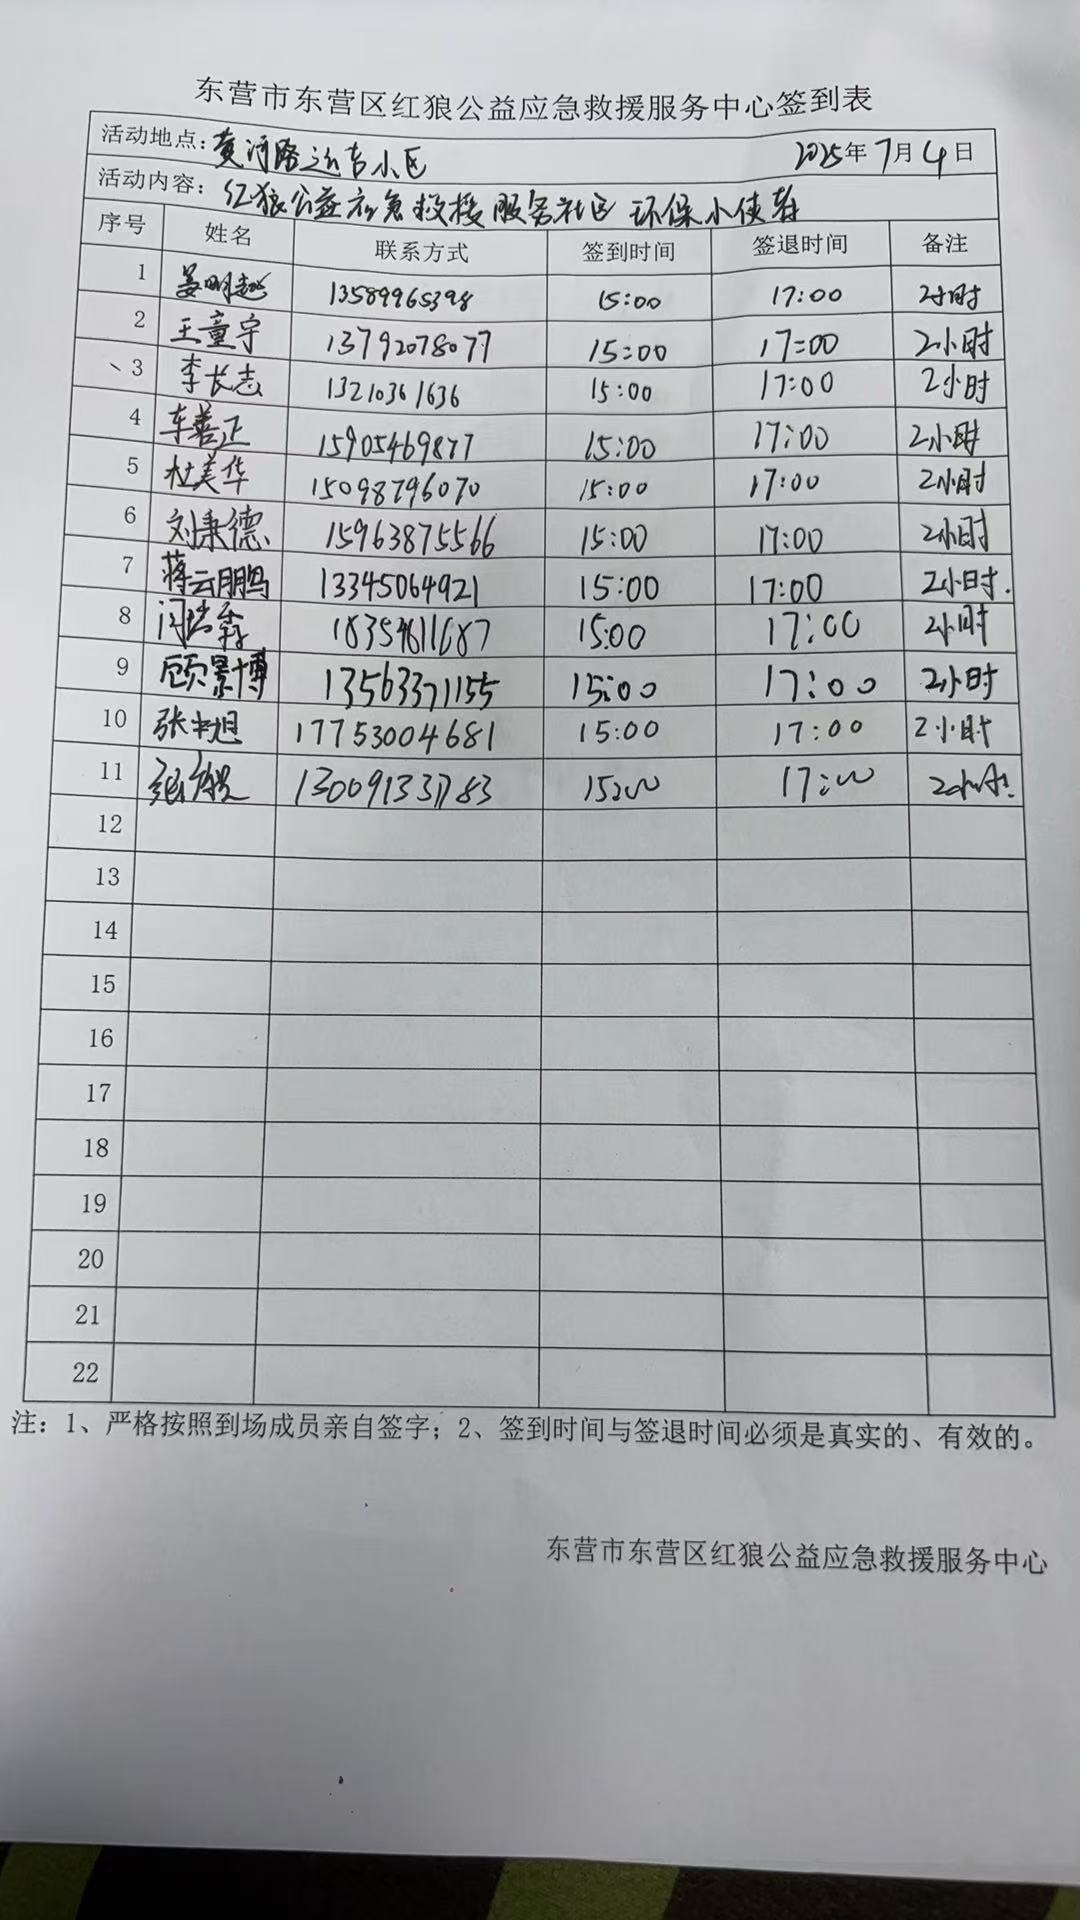 东营市东营区红狼公益应急救援服务中心签到表
活动地点：黄河路运吉小区 2025年7月4日
活动内容：红狼公益应急救援服务社区 环保小侠在
序号 姓名 联系方式 签到时间 签退时间 备注
1 姜明越 13589965398 15:00 17:00 2小时
2 王童宇 13792078077 15:00 17:00 2小时
3 李长志 13210361636 15:00 17:00 2小时
4 车善正 15905469877 15:00 17:00 2小时
5 杜美华 15098796070 15:00 17:00 2小时
6 刘秉德 15963875566 15:00 17:00 2小时
7 蒋云鹏 13345064921 15:00 17:00 2小时.
8 闫瑞森 18354611687 15:00 17:00 2小时
9 顾景博 13563371155 15:00 17:00 2小时
10 张忠旭 17753004681 15:00 17:00 2小时
11 13009133783 15:00 17:00 2小时.
12
13
14
15
16
17
18
19
20
21
22
注：1、严格按照到场成员亲自签字；2、签到时间与签退时间必须是真实的、有效的。
东营市东营区红狼公益应急救援服务中心